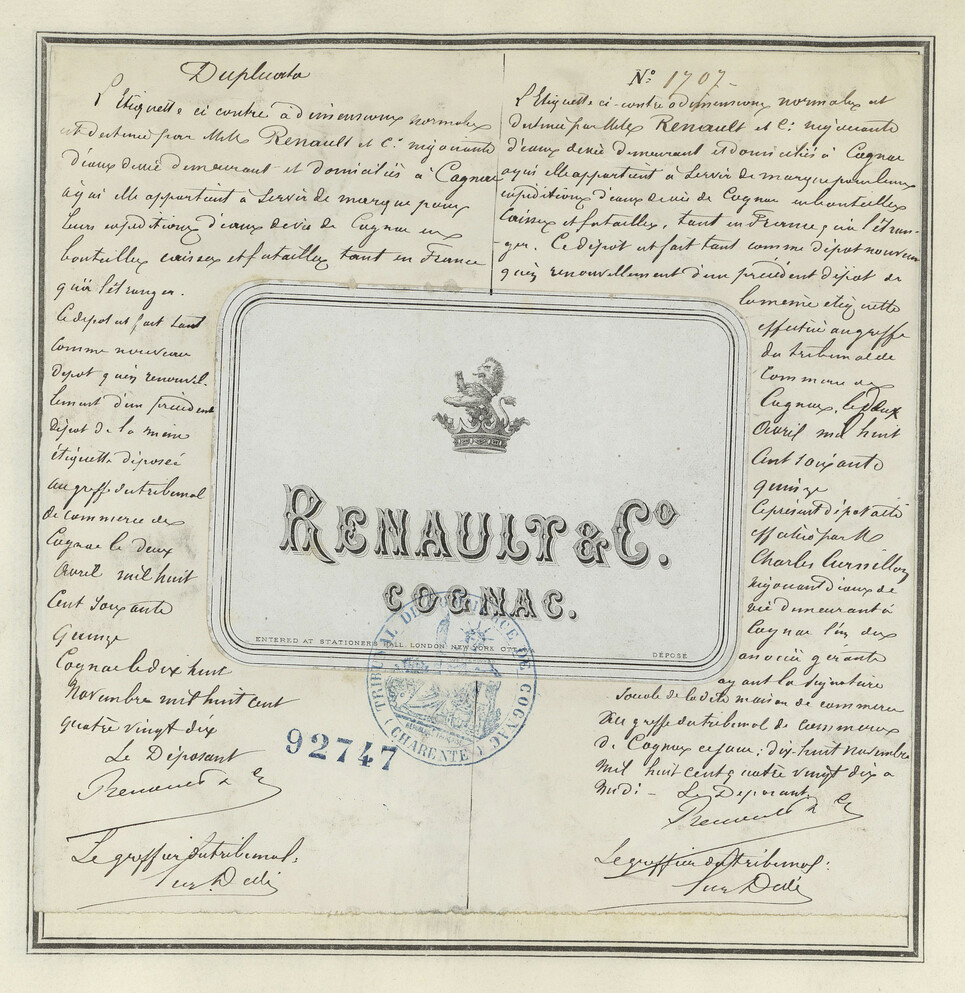 Duplicata
L'Etiquette ci contre à dimensions normales
est détenue par MM. Renault et Cie négociants
d'eaux de vie demeurant et domiciliés à Cognac
à qui elle appartient à servir de marque pour
leurs expéditions d'eaux de vie de Cognac en
bouteilles caisses et futailles tant en France
qu'à l'étranger.
Ce dépot est fait tant
comme nouveau
dépot qu'en renouvel-
lement d'un précédent
dépot de la même
étiquette déposée
au greffe du tribunal
de commerce de
Cognac le deux
Avril mil huit
Cent soixante
Quinze
Cognac le dix huit
Novembre mil huit cent
quatre vingt dix
Le Déposant
Renault & Co
Le greffier du tribunal:
No 1707-
L'Etiquette ci-contre à dimensions normales est
détenue par MM. Renault et Cie négociants
d'eaux de vie demeurant et domiciliés à Cognac
à qui elle appartient à servir de marque pour leurs
expéditions d'eaux de vie de Cognac en bouteilles
caisses et futailles, tant en France qu'à l'étran-
-ger. Ce dépot est fait tant comme dépot nouveau
qu'en renouvellement d'un précédent dépot de
la même étiquette
effectué au greffe
du tribunal de
Commerce de
Cognac, le deux
Avril mil huit
Cent soixante
quinze
Le présent dépot a été
effectué par M
Charles
négociant d'eaux de
vie demeurant à
Cognac l'un des
associés gérants
ayant la signature
sociale de la dite maison de commerce
Au greffe du tribunal de commerce
de Cognac ce jour; dix-huit novembre
Mil huit cent quatre vingt dix à
Midi - Le Déposant
Renault & Co
Le greffier du tribunal:
RENAULT & Co.
COGNAC.
ENTERED AT STATIONERS HALL. LONDON NEW YORK CITY
DÉPOSÉ
TRIBUNAL DE COMMERCE DE COGNAC
(CHARENTE)
92747